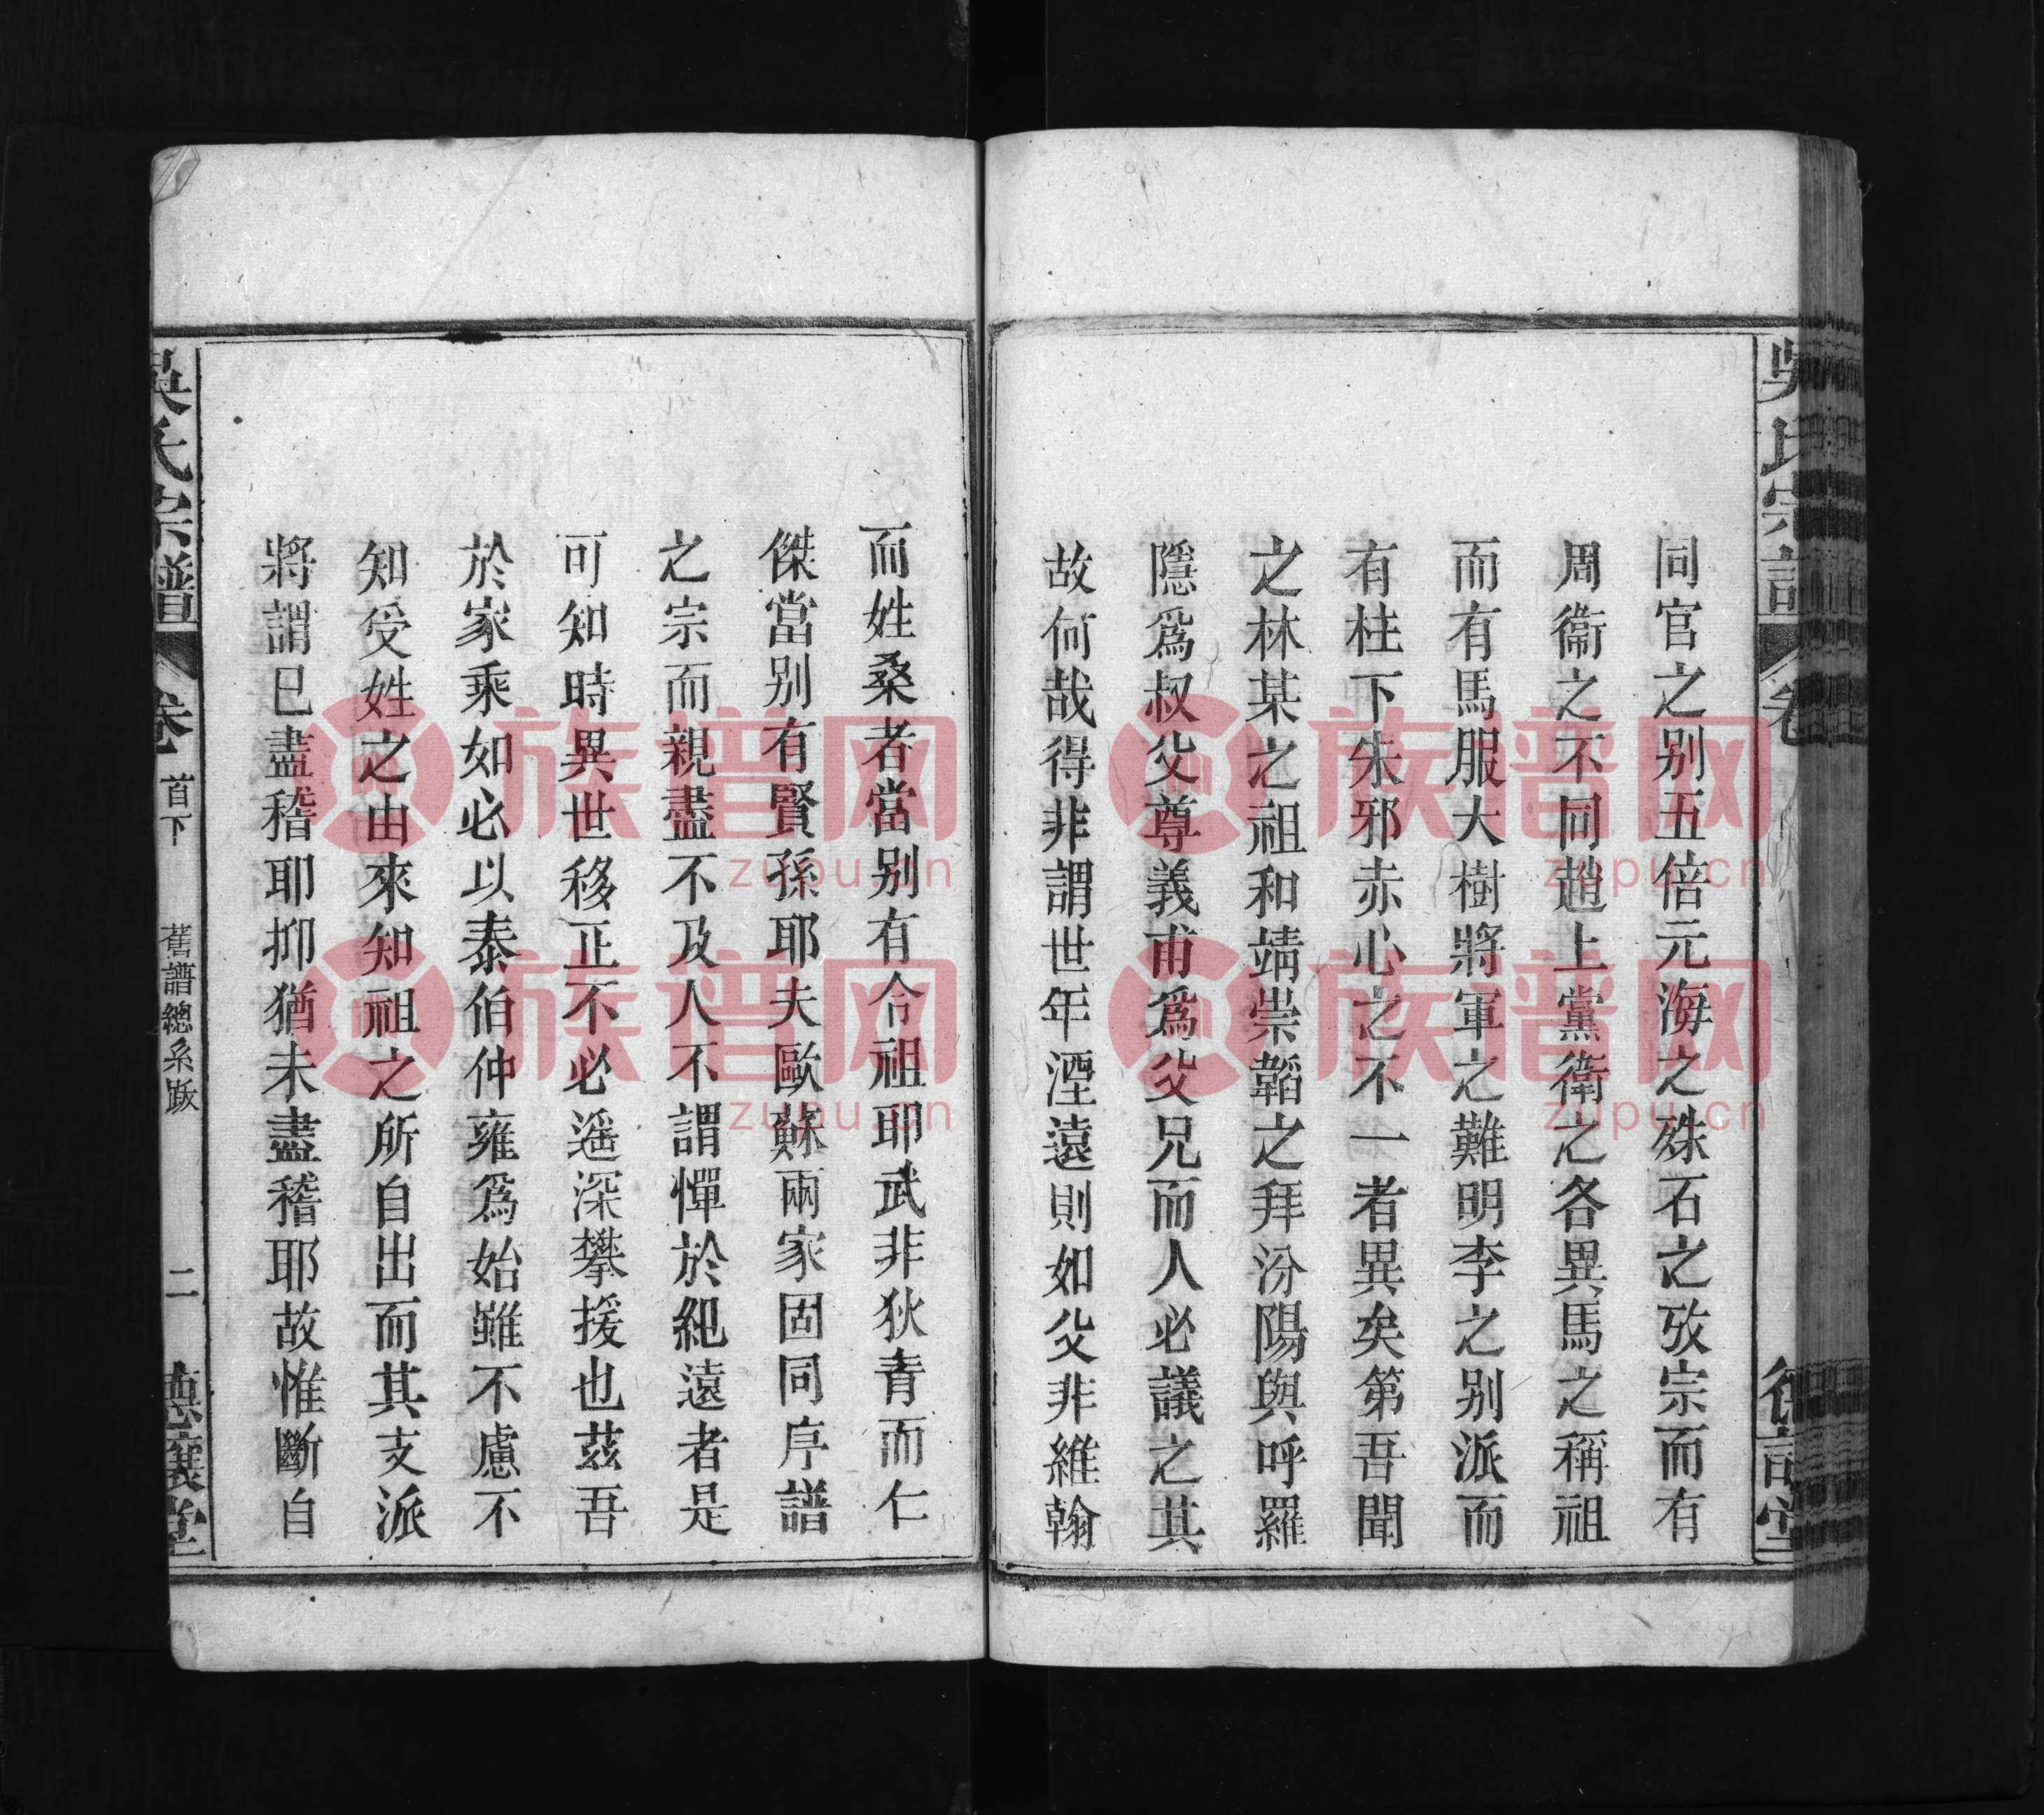 同官之別五倍元海之殊石之攷宗而有
周衞之不同趙上黨衛之各異馬之稱祖
而有馬服大樹將軍之難明李之別派而
有柱下朱邪赤心之不一者異矣第吾聞
之林某之祖和靖崇韜之拜汾陽與呼羅
隱爲叔父尊義甫爲父兄而人必議之其
故何哉得非謂世年湮遠則如父非維翰
而姓桑者當別有令祖耶武非狄青而仁
傑當別有賢孫耶夫歐蘇兩家固同序譜
之宗而親盡不及人不謂憚於紀遠者是
可知時異世移正不必遥深攀援也茲吾
於家乘如必以泰伯仲雍爲始雖不慮不
知受姓之由來知祖之所自出而其支派
將謂已盡稽耶抑猶未盡稽耶故惟斷自
吳氏宗譜 卷首下 舊譜總系跋 二 讓堂
吳氏宗 卷 堂
族谱网
zupu.cn
族谱网
zupu.cn
族谱网
zupu.cn
族谱网
zupu.cn